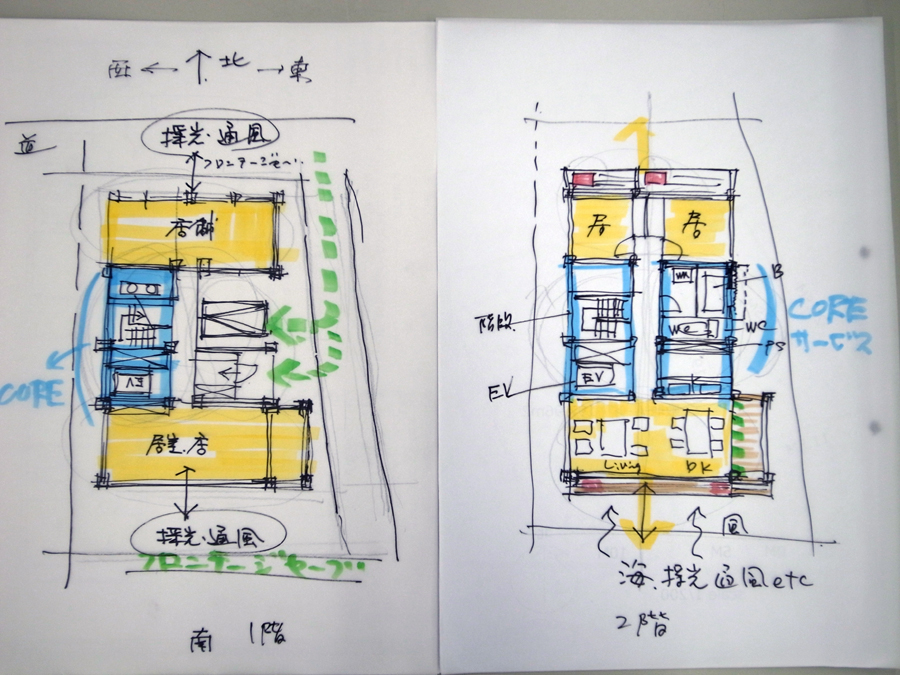 西 ← ↑ 北 → 東
道
採光・通風
フロンテージセーブ
店舗
EV
CORE
居室・店
採光・通風
フロンテージセーブ
南 1階
居 居
階段
EV
EV
B
WC
WC
PS
CORE
サービス
Living
DK
風
海、採光通風etc
2階